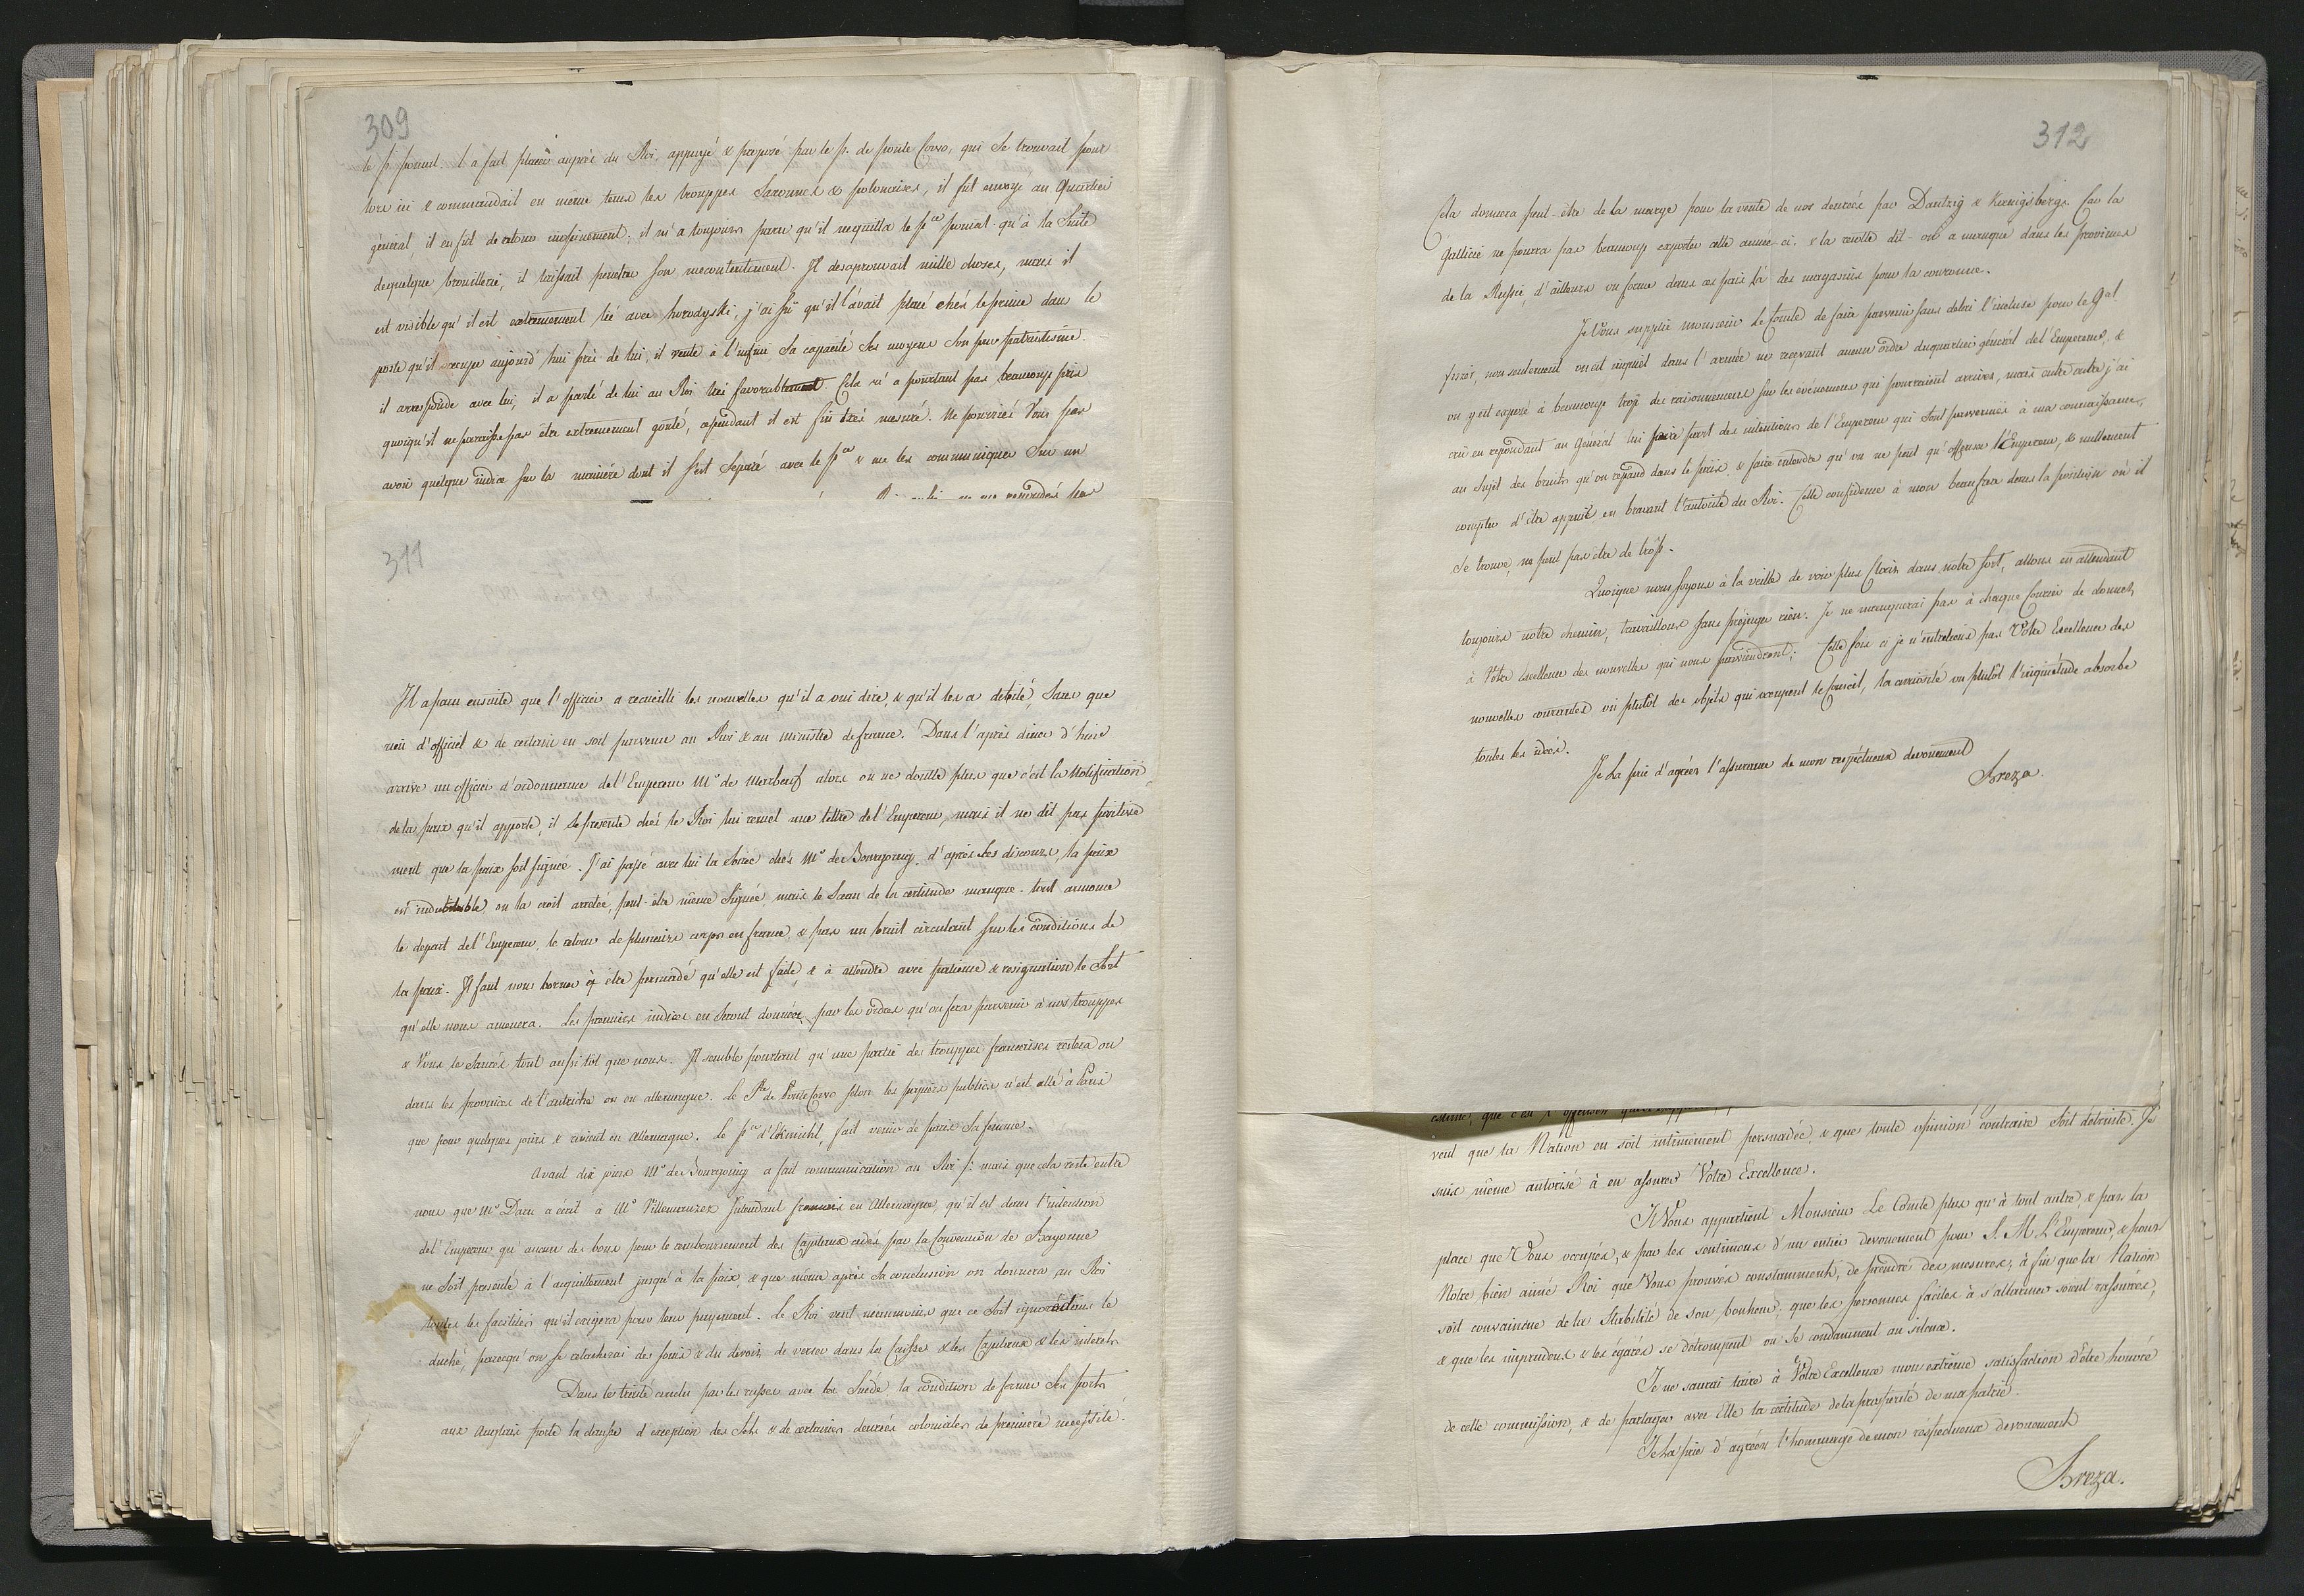 309
le p. poniat. l'a fait placer auprès du Roi, appuyé & proposé par le p. de ponte Corvo, qui se trouvait pour
lors ici & commandait en meme tems les trouppes Saxonnes & polonaises, il fut envoye au Quartier
général, il en fut de retour incessamment; il m'a toujours paru qu'il nequitta le pce poniat. qu'à la Suite
dequelque brouillerie, il laissait penetrer son mecontentement. Il desaprouvait mille choses, mais il
est visible qu'il est extremement lié avec horodyski, j'ai sû qu'il l'avait placé chés leprince dans le
poste qu'il occupe aujourd'hui près de lui, il vante à l'infini sa capacité ses moyens son pur patriotisme.
il correspond avec lui, il a parlé de lui au Roi très favorablement. Cela n'a pourtant pas beaucoup pris
quoiqu'il neparaisse pas être extremement goûté, cependant il est fin très mesuré. Ne pourriés Vous pas
avoir quelque indice sur la manière dont il s'est separé avec le pce & me les communiquer sur un
311
Il a paru ensuite que l'officier a recueilli les nouvelles qu'il a oui dire, & qu'il les a debité, sans que
rien d'officiel & de certain en soit parvenu au Roi & au ministre defrance. Dans l'après dinée d'hier
arrive un officier d'ordonnance del'Empereur Mr de Marbeuf alors on ne doutte plus que c'est la Notification
dela paix qu'il apporte, il se presente chés le Roi lui remet une lettre del'Empereur, mais il ne dit pas positive
ment que la paix soit signée. J'ai passé avec lui la soirée chés Mr de Bourgoing. d'après ses discours, la paix
est indubitable, on la croit arrêtée, peut-être même signée mais le Sceau de la certitude manque. tout annonce
le depart del'Empereur, le retour de plusieurs corps en france, & pas un bruit circulant sur les conditions de
la paix. Il faut nous borner à être persuadé qu'elle est faite, & à attendre avec patience & resignation le Sort
qu'elle nous amenera. Les premiers indices en seront données par les ordres qu'on fera parvenir à nos trouppes
& Vous le saurés tout aussi tôt que nous. Il semble pourtant qu'une partie de trouppes francaises restera ou
dans les provinces de l'autriche ou en allemagne. Le Pce de Ponte Corvo selon les papiers publics n'est allé à Paris
que pour quelques jours & revient en Allemagne. Le pce d'Ekmühl, fait venir de paris sa femme.
Avant dix jours Mr de Bourgoing a fait communication au Roi /: mais que cela reste entre
nous que Mr Daru a écrit à Mr Villemanzer Intendant francais en Allemagne, qu'il est dans l'intention
del'Empereur qu'aucun des bons pour le remboursement des Capitaux cedés par la Convention de Bayonne
ne soit presenté à l'acquittement jusqu'à la paix, & que même après sa conclusion on donnera au Roi
toutes les facilités qu'il exigera pour leur payement. Le Roi veut neanmoins que ce soit ignoré dans le
duché, parcequ'on se relacherai des soins & du devoir de verser dans les Caisses & les Capitaux & les interets.
Dans le traité conclu par les russes avec la Suède, la condition de fermer ses ports
aux Anglais porte la clause d'exception des Sels & de certaines denrées coloniales de premiere necessité.
312
Cela donnera peut-être de la marge pour la vente de nos denrées par Dantzig & Kœnigsberg. Car la
Gallicie ne pourra pas beaucoup exporter cette année-ci, & la récolte dit-on a manqué dans les provinces
de la Russie, d'ailleurs on forme dans ces païs là des magasins pour la couronne.
Je Vous supplie monsieur le Comte de faire parvenir sans delai l'incluse pour le Gal
fiszer, non seulement on est inquiet dans l'armée ne recevant aucun ordre duquartier général del'Empereur, &
on y est exposé à beaucoup trop de raisonnemens sur les evénemens qui pourraient arriver, mais outre outre j'ai
crû en repondant au Général lui faire part des intentions de l'Empereur qui sont parvenües à ma connaissance,
au sujet des bruits qu'on répand dans le païs & faire entendre qu'on ne peut qu'offenser l'Empereur, & nullement
compter d'être appuié en bravant l'autorité du Roi. Cette confidence à mon beaufrere dans la position où il
se trouve, ne peut pas être de trop.
Quoique nous soyons à la veille de voir plus Clair dans notre sort, allons en attendant
toujours notre chemin, travaillons sans préjuger rien. Je ne manquerai pas à chaque Courier de donner
à Votre Excellence des nouvelles qui nous parviendront; Cette fois ci je n'entretiens pas Votre Excellence des
nouvelles courantes ou plutôt des objets qui occupent le Conseil, la curiosité ou plutôt l'inquiétude absorbe
toutes les idées.
Je La prie d'agréer l'assurance de mon respectueux devouement
Breza.
veut que la Nation en soit intimement persuadée, & que toute opinion contraire soit detruite. Je
suis même autorisé à en assurer Votre Excellence.
Il Vous appartient Monsieur Le Comte plus qu'à tout autre, & par la
place que Vous occupés, & par les sentimens d'un entier devouement pour S. M. L'Empereur, & pour
Notre bien aimé Roi que Vous prouvés constamment, de prendre des mesures, à fin que la Nation
soit convaincue de la stabilité de son bonheur, que les personnes faciles à s'allarmer soient rassurées,
& que les imprudens & les égarés se détrompent ou se condamnent au silence.
Je ne saurai taire à Votre Excellence mon extrême satisfaction d'être honoré
de cette commission, & de partager avec Elle la certitude dela prosperité de ma patrie.
Je La prie d'agréer l'hommage de mon respectueux devouement
Breza.